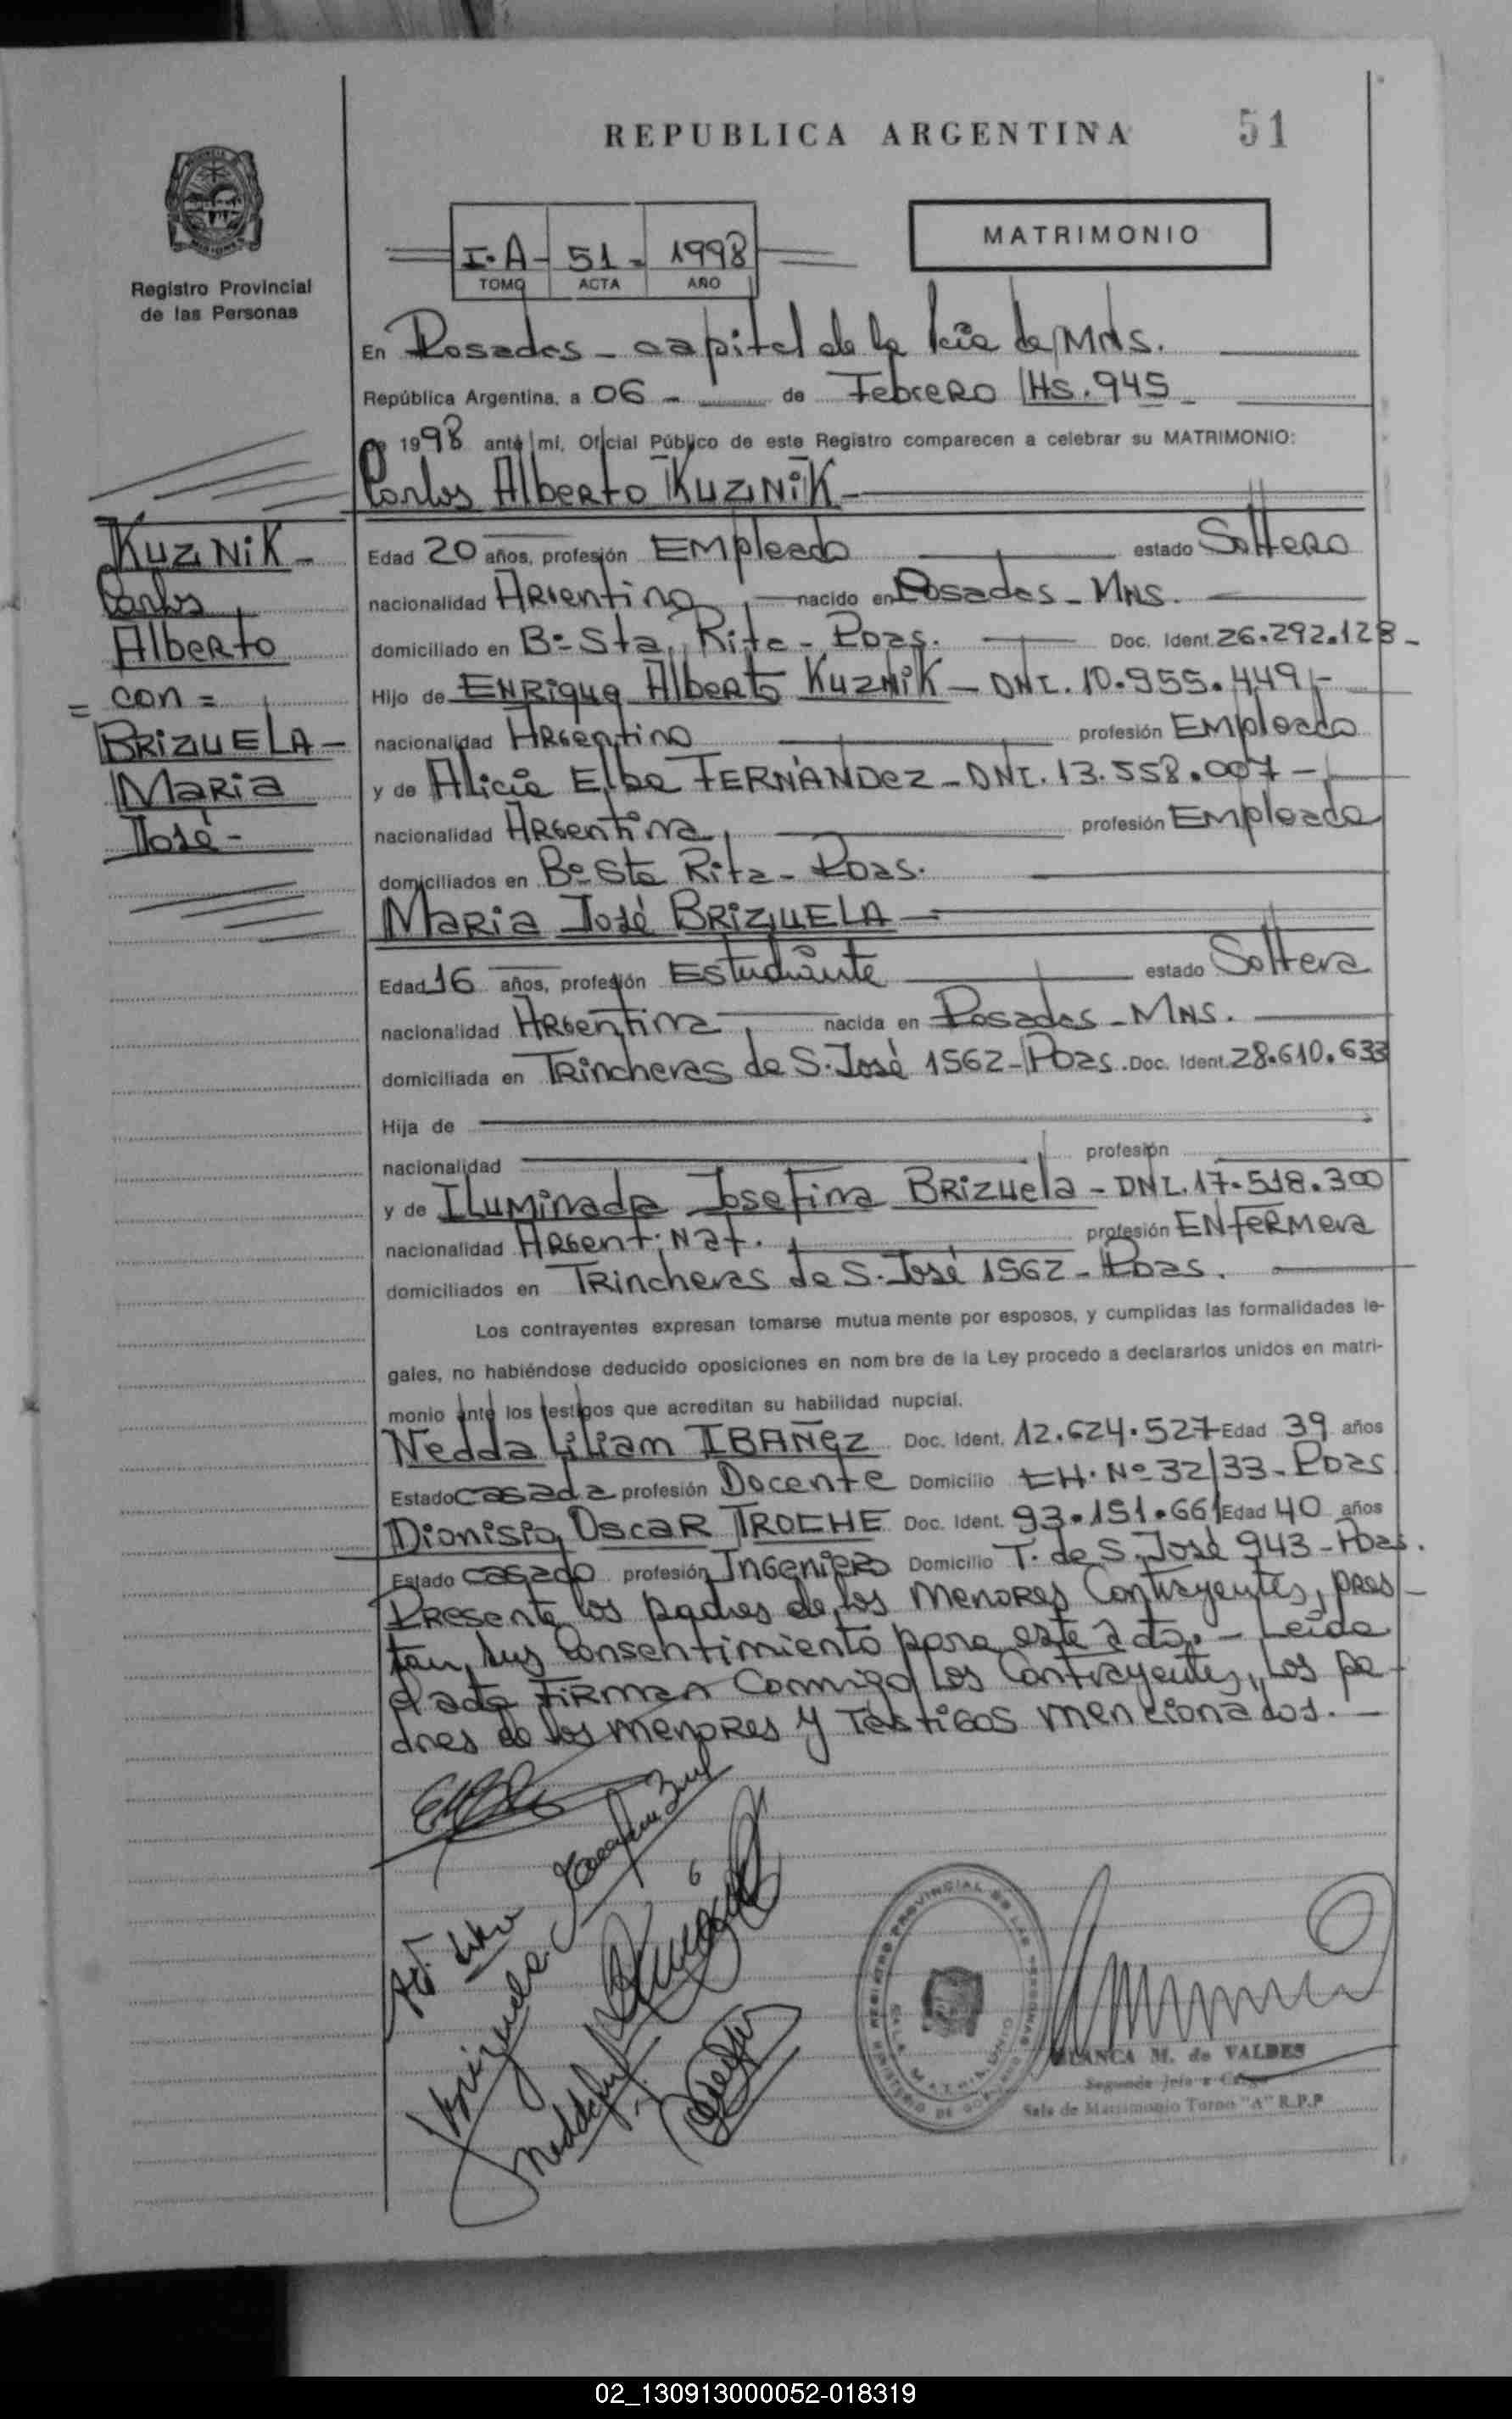 REPUBLICA ARGENTINA 51
Registro Provincial
de las Personas
I-A- 51- 1998
TOMO ACTA AÑO
MATRIMONIO
En Posadas - capital de la Pcia de MNS.
República Argentina, a 06 - de Febrero Hs. 945
de 1998 ante mí, Oficial Público de este Registro comparecen a celebrar su MATRIMONIO:
Carlos Alberto KUZNIK -
KUZNIK -
Carlos
Alberto
= con =
BRIZUELA -
Maria
José -
Edad 20 años, profesión Empleado estado Soltero
nacionalidad Argentino nacido en Posadas - MNS.
domiciliado en Bº Sta. Rita - Pdas. Doc. Ident. 26.292.128 -
Hijo de Enrique Alberto Kuznik - DNI. 10.955.449 -
nacionalidad Argentino profesión Empleado
y de Alicia Elba FERNÁNDEZ - DNI. 13.558.007 -
nacionalidad Argentina profesión Empleada
domiciliados en Bº Sta Rita - Pdas.
Maria José BRIZUELA -
Edad 16 años, profesión Estudiante estado Soltera
nacionalidad Argentina nacida en Posadas - MNS.
domiciliada en Trincheras de S. José 1562 - Pdas. Doc. Ident. 28.610.633
Hija de
nacionalidad profesión
y de Iluminada Josefina Brizuela - DNI. 17.518.300
nacionalidad Argent. Nat. profesión Enfermera
domiciliados en Trincheras de S. José 1562 - Pdas.
Los contrayentes expresan tomarse mutua mente por esposos, y cumplidas las formalidades le-
gales, no habiéndose deducido oposiciones en nom bre de la Ley procedo a declararlos unidos en matri-
monio ante los testigos que acreditan su habilidad nupcial.
Nedda Liliam IBAÑEZ Doc. Ident. 12.624.527 Edad 39 años
Estado casada profesión Docente Domicilio CH. Nº 32/33 - Pdas
Dionisio Oscar TROCHE Doc. Ident. 93.151.661 Edad 40 años
Estado casado profesión Ingeniero Domicilio T. de S. José 943 - Pdas.
Presente los padres de los menores Contrayentes, pres-
tan, sus Consentimiento para este acto. - Leída
el acta FIRMAN Conmigo los Contrayentes, los pa-
dres de los menores y Testigos mencionados. -
REGISTRO PROVINCIAL DE LAS PERSONAS
SALA MATRIMONIO
MINISTERIO DE GOBIERNO
BLANCA M. de VALDES
Segundo Jefe a Cargo
Sala de Matrimonio Turno "A" R.P.P
02_130913000052-018319